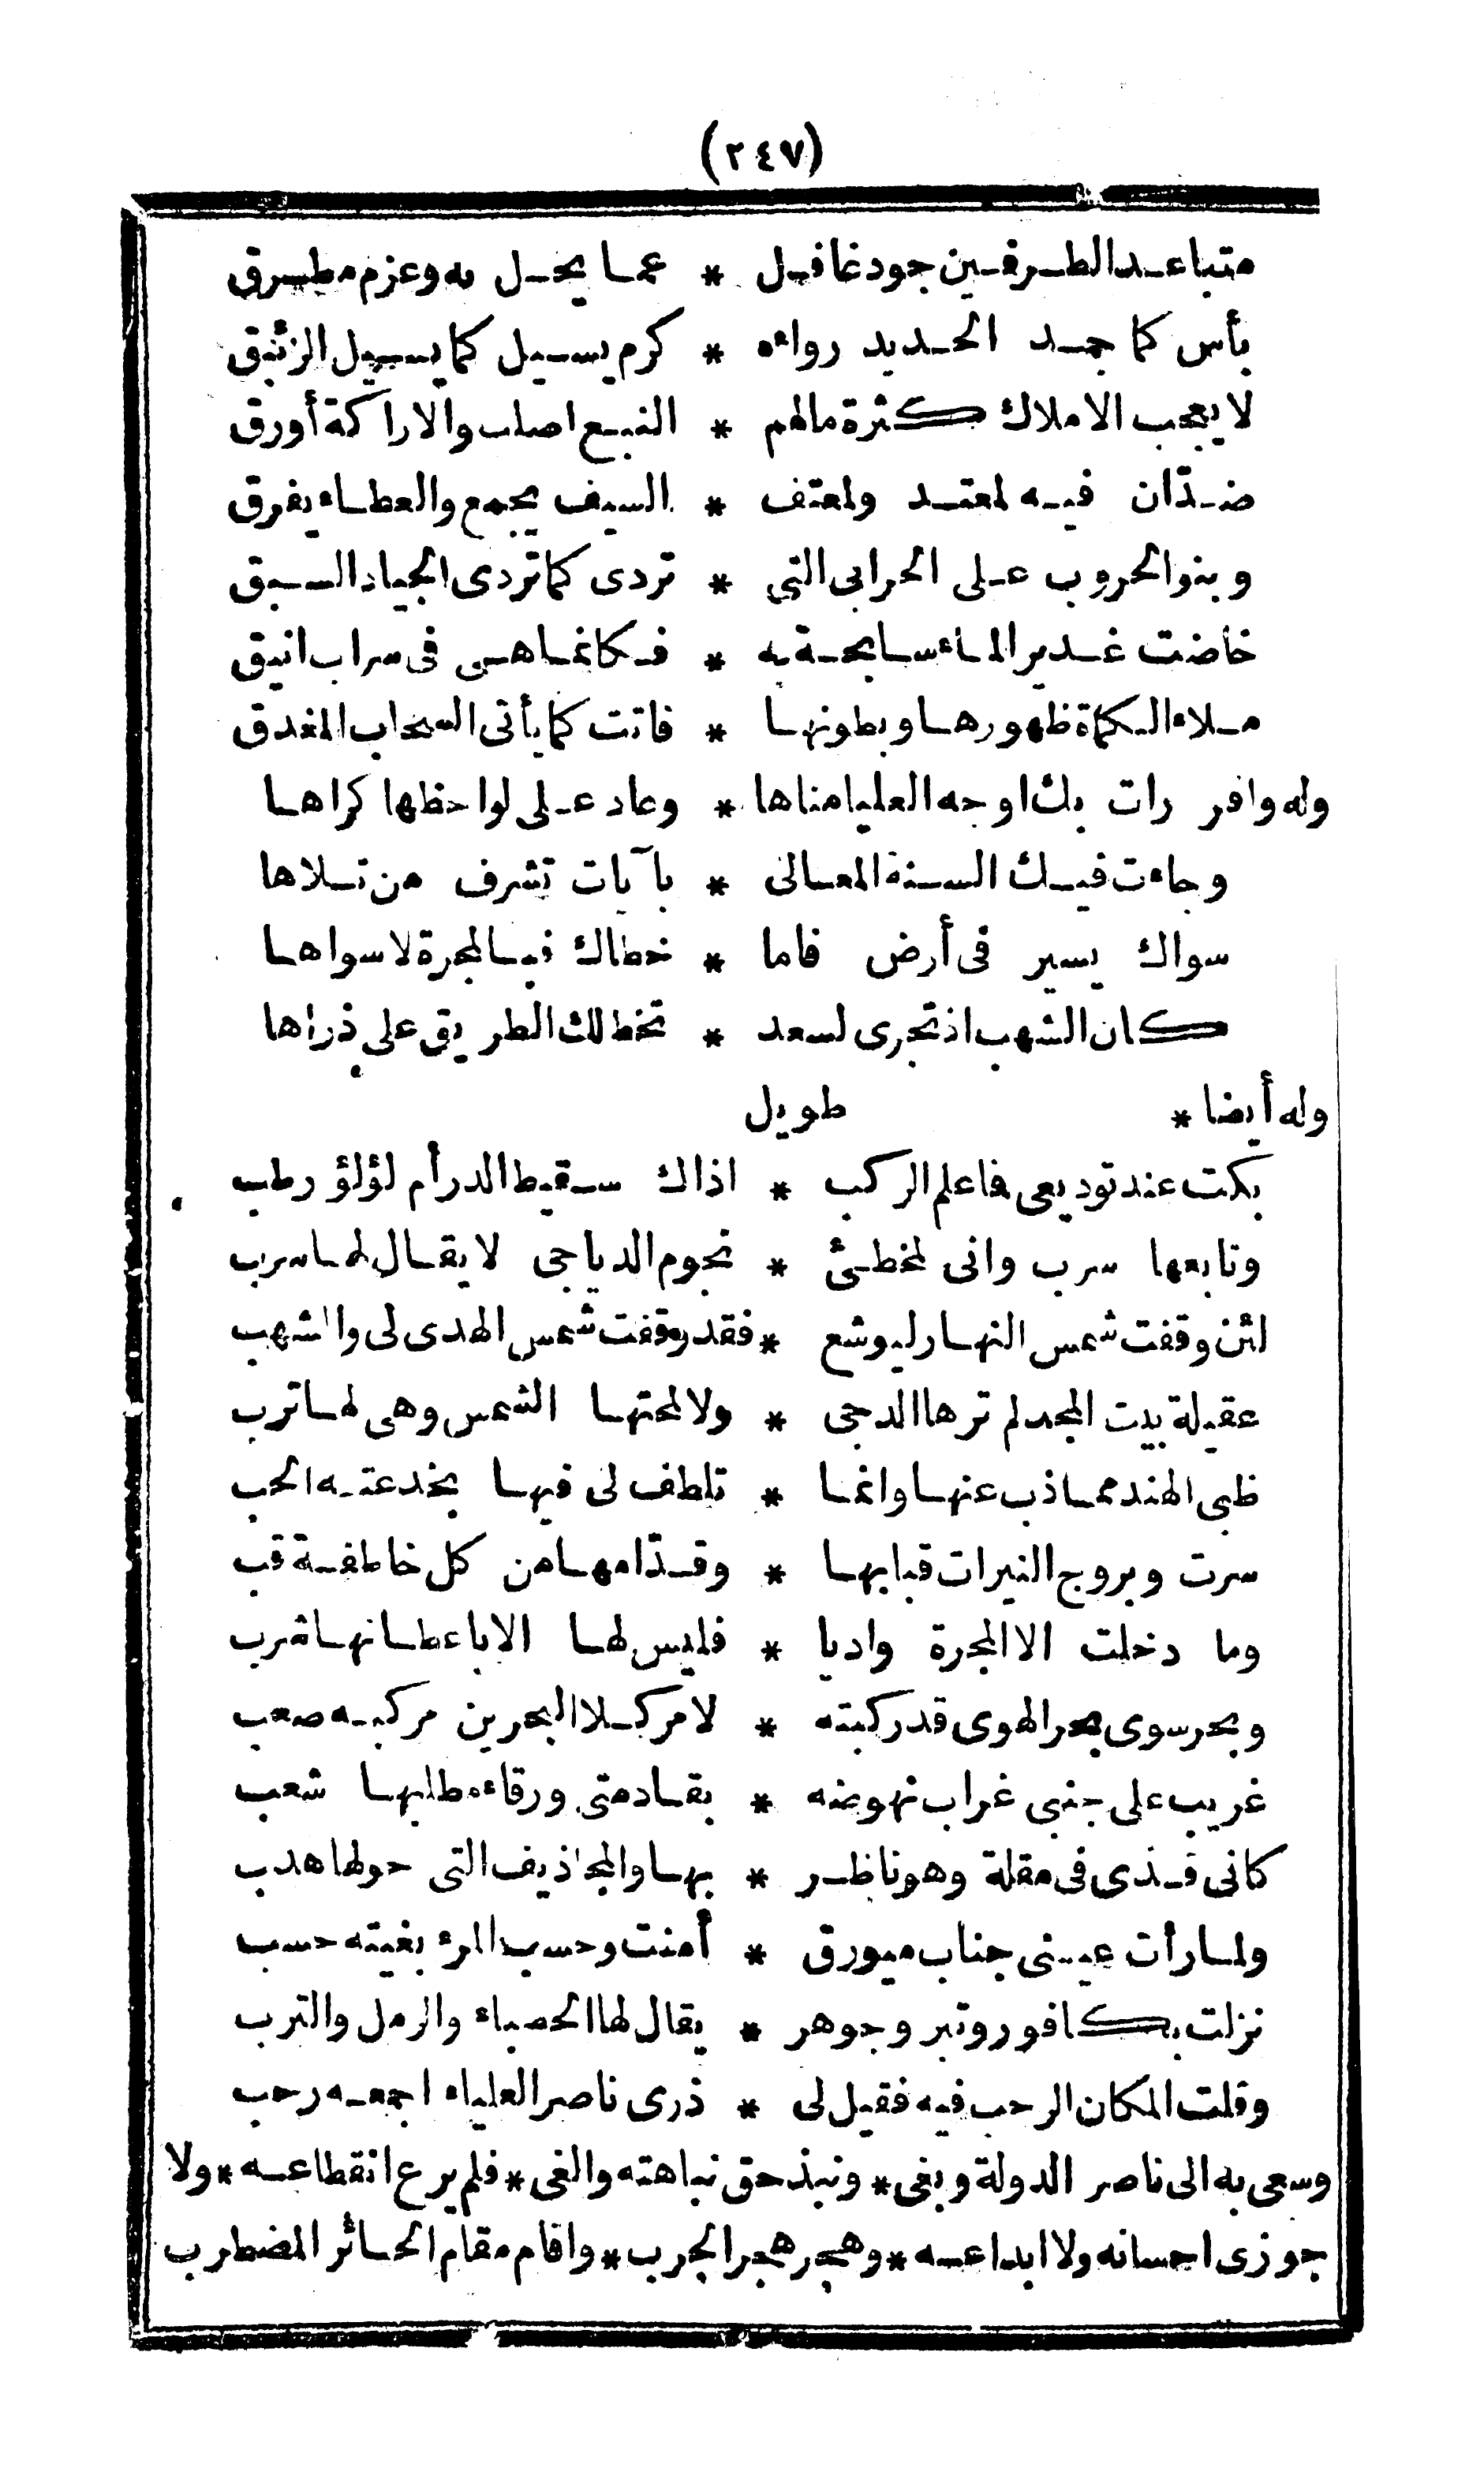 (٢٤٧)
متباعد الطرفين جود غافل * عما يحل به وعزم مطرق
بأس كما جمد الحديد رواءه * كرم يسيل كما يسيل الزئبق
لا يعجب الاملاك كثرة مالهم * النبع اصلب والاراكة أورق
ضدّان فيه لمعتد ولمعتف * السيف يجمع والعطاء يفرق
وبنو الحروب على الحرابى التى * تردى كما تردى الجياد السبق
خاضت غدير الماء سابحة به * فكانما هى فى سراب انيق
ملاء الكماة ظهورها وبطونها * فاتت كما يأتى السحاب المغدق
وله وافر رات بك اوجه العليا مناها * وعاد على لواحظها كراها
وجاءت فيك السنة المعالى * بآيات تشرف من تلاها
سواك يسير فى أرض فاما * خطاك فبالمجرة لا سواها
كان الشهب اذ تجرى لسعد * تخط لك الطريق على ذراها
وله أيضا * طويل
بكت عند توديعى فاعلم الركب * اذاك سقيط الدر أم لؤلؤ رطب
وتابعها سرب وانى لمخطئ * نجوم الدياجى لا يقال لها سرب
لئن وقفت شمس النهار ليوشع * فقد وقفت شمس الهدى لى والشهب
عقيلة بيت المجد لم ترها الدجى * ولا لمحتها الشمس وهى لها ترب
ظبى الهند مما ذب عنها وانما * تلطف لى فيها بخدعته الحب
سرت وبروج النيرات قبابها * وقدّامها من كل خاطفة قب
وما دخلت الا المجرة واديا * فليس لها الا باعطانها شرب
وبحر سوى بحر الهوى قد ركبته * لامر كلا البحرين مركبه صعب
غريب على جنبى غراب نهوضه * بقادمتى ورقاء مطلبها شعب
كانى قذى فى مقلة وهو ناظر * بها والمجاذيف التى حولها هدب
ولما رأت عينى جناب ميورق * أمنت وحسب المرء بغيته حسب
نزلت بكافور وتبر وجوهر * يقال لها الحصباء والرمل والترب
وقلت المكان الرحب فيه فقيل لى * ذرى ناصر العلياء اجمعه رحب
وسعى به الى ناصر الدولة وبغى * ونبذ حق نباهته والغى * فلم يرع انقطاعه * ولا
جوزى احسانه ولا ابداعه * وهجر هجر الجرب * واقام مقام الحائر المضطرب